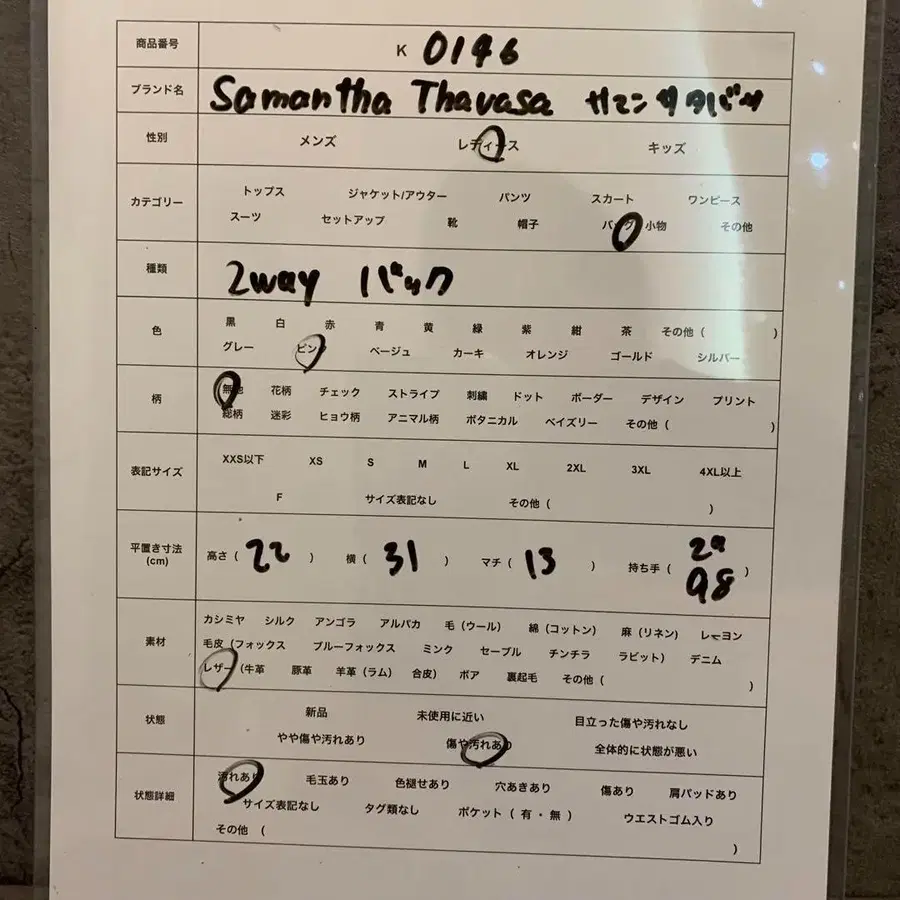 商品番号 K 0146
ブランド名 Samantha Thavasa サマンサタバサ
性別 メンズ レディース キッズ
カテゴリー トップス ジャケット/アウター パンツ スカート ワンピース
スーツ セットアップ 靴 帽子 バッグ 小物 その他
種類 2way バック
色 黒 白 赤 青 黄 緑 紫 紺 茶 その他 ( )
グレー ピンク ベージュ カーキ オレンジ ゴールド シルバー
柄 無地 花柄 チェック ストライプ 刺繍 ドット ボーダー デザイン プリント
総柄 迷彩 ヒョウ柄 アニマル柄 ボタニカル ペイズリー その他 ( )
表記サイズ XXS以下 XS S M L XL 2XL 3XL 4XL以上
F サイズ表記なし その他 ( )
平置き寸法 (cm) 高さ ( 22 ) 横 ( 31 ) マチ ( 13 ) 持ち手 ( 29 98 )
素材 カシミヤ シルク アンゴラ アルパカ 毛 (ウール) 綿 (コットン) 麻 (リネン) レーヨン
毛皮 (フォックス ブルーフォックス ミンク セーブル チンチラ ラビット) デニム
レザー (牛革 豚革 羊革 (ラム) 合皮) ボア 裏起毛 その他 ( )
状態 新品 未使用に近い 目立った傷や汚れなし
やや傷や汚れあり 傷や汚れあり 全体的に状態が悪い
状態詳細 汚れあり 毛玉あり 色褪せあり 穴あきあり 傷あり 肩パッドあり
サイズ表記なし タグ類なし ポケット ( 有 ・ 無 ) ウエストゴム入り
その他 ( )